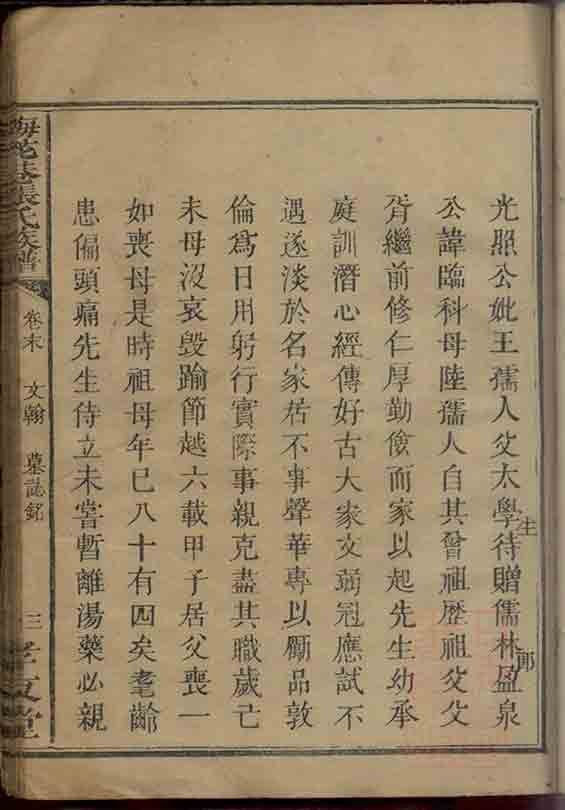 光照公妣王孺人父太學生待贈儒林郎盈泉
公諱臨科母陸孺人自其曾祖歷祖父父
胥繼前修仁厚勤儉而家以起先生幼承
庭訓潛心經傳好古大家文弱冠應試不
遇遂淡於名家居不事聲華專以勵品敦
倫爲日用躬行實際事親克盡其職歲己
未母沒哀毀踰節越六載甲子居父喪一
如喪母是時祖母年已八十有四矣耄齡
患偏頭痛先生侍立未嘗暫離湯藥必親
張氏族譜
卷末 文翰 墓誌銘
三
孝友堂